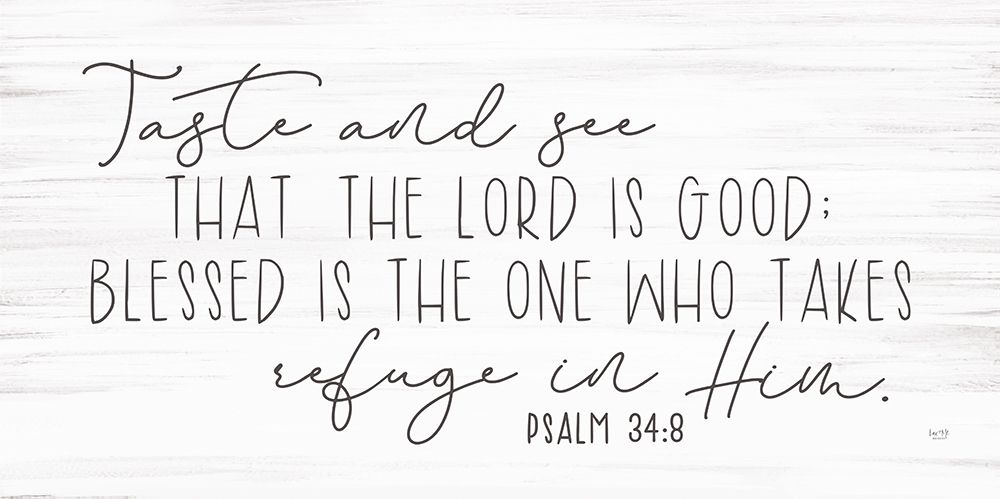 Taste and see
THAT THE LORD IS GOOD;
BLESSED IS THE ONE WHO TAKES
refuge in Him.
PSALM 34:8